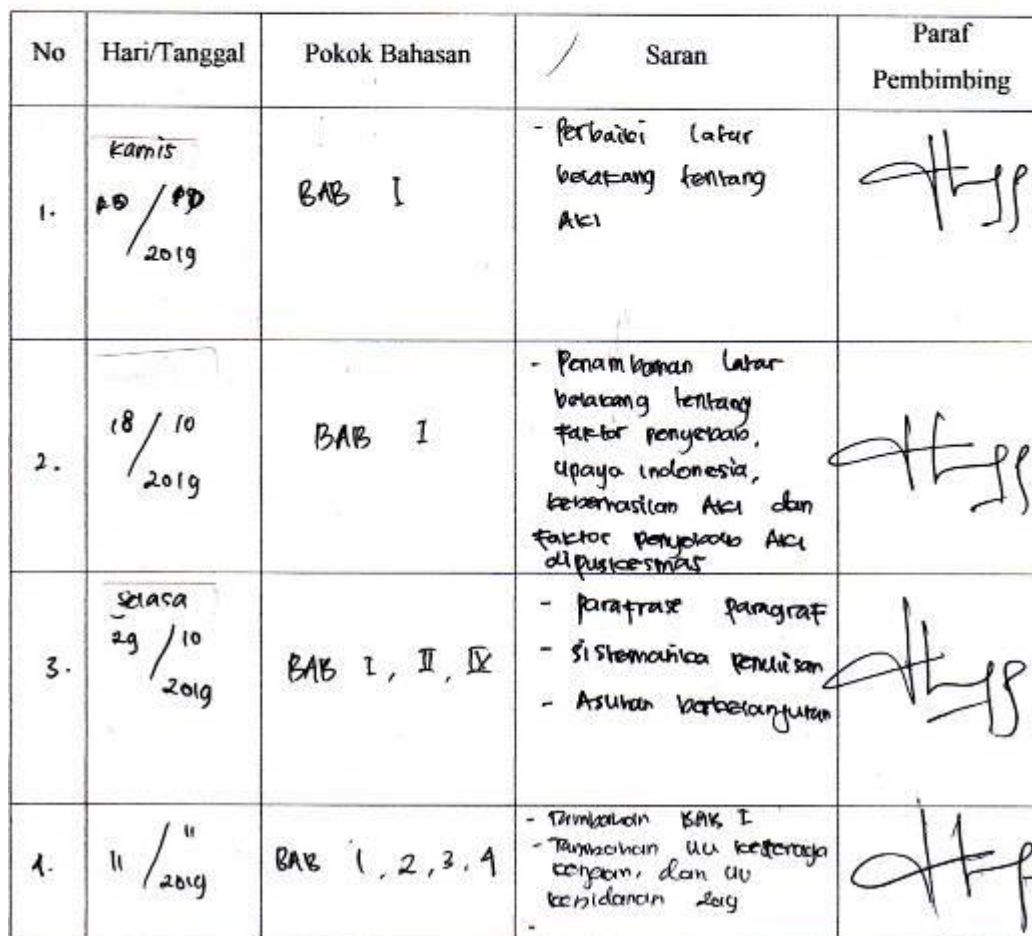 No Hari/Tanggal Pokok Bahasan Saran Paraf Pembimbing
1.
Kamis
10 / 10
2019
BAB I
- Perbaiki latar
belakang tentang
AKI
2.
18 / 10
2019
BAB I
- Penambahan latar
belakang tentang
faktor penyebab,
upaya indonesia,
keberhasilan AKI dan
faktor penyebab AKI
dipuskesmas
3.
Selasa
29 / 10
2019
BAB I, II, IV
- parafrase paragraf
- sistematika penulisan
- Asuhan berkelanjutan
4.
11 / 11
2019
BAB 1, 2, 3, 4
- Tambahan BAB I
- Tambahan UU
dan UU
kebidanan 2019
-